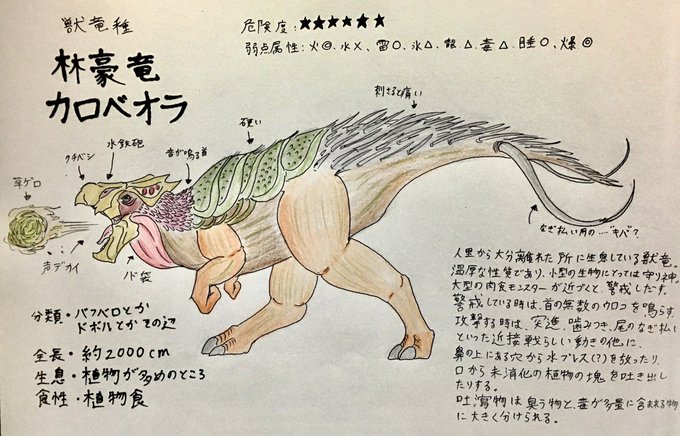 獣竜種
危険度:★★★★★★
弱点属性:火◎、水×、雷○、氷△、龍△、毒△、睡○、爆◎
林豪竜
カロベオラ
刺さると痛い
硬い
水鉄砲
クチバシ
音が鳴る首
草ゲロ
声デカイ
ノド袋
なぎ払い用の…“キバ”?
人里から大分離れた所に生息している獣竜。
温厚な性質であり、小型の生物にとっては守り神。
大型の肉食モンスターが近づくと、警戒しだす。
警戒している時は、首の無数のウロコを鳴らす。
攻撃する時は、突進、噛みつき、尾のなぎ払い
といった近接戦らしい動きの他に、
鼻の上にある穴から水ブレス(?)を放ったり、
口から未消化の植物の塊を吐き出し
たりする。
吐瀉物は臭う物と、毒が多量に含まれる物
に大きく分けられる。
分類・バフベロとか
ドボルとかその辺
全長・約2000cm
生息・植物が多めのところ
食性・植物食